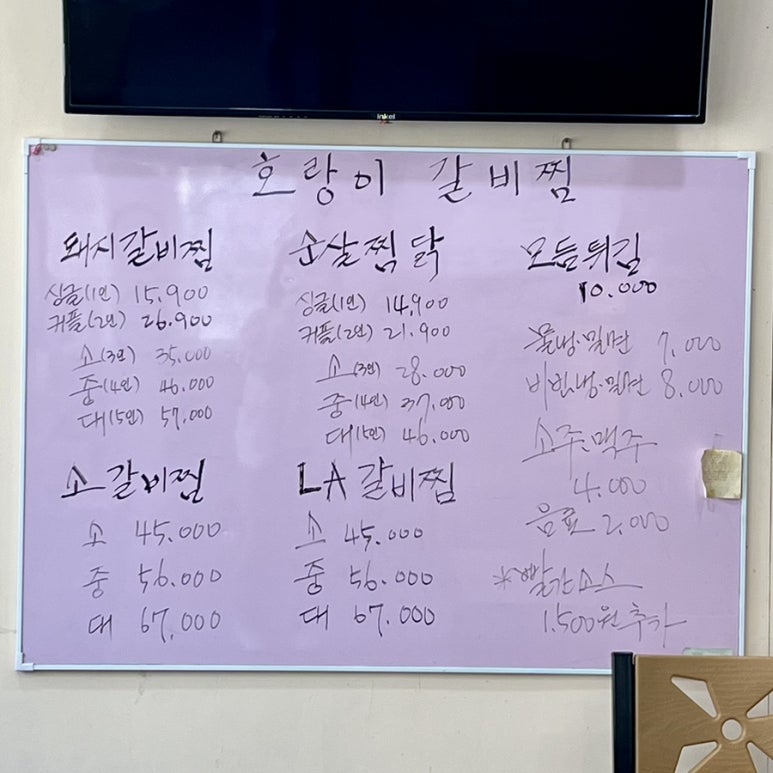 inkel
호랑이 갈비찜
돼지갈비찜
싱글(1인) 15,900
커플(2인) 26.900
소(3인) 35.000
중(4인) 46.000
대(5인) 57,000
순살찜닭
싱글(1인) 14,900
커플(2인) 21.900
소(3인) 28.000
중(4인) 37,000
대(5인) 46.000
모듬튀김
10.000
물냉·밀면 7,000
비빔냉·밀면 8,000
소주·맥주
4.000
음료 2,000
*빨간소스
1.500원추가
소갈비찜
소 45.000
중 56.000
대 67,000
LA갈비찜
소 45.000
중 56.000
대 67.000